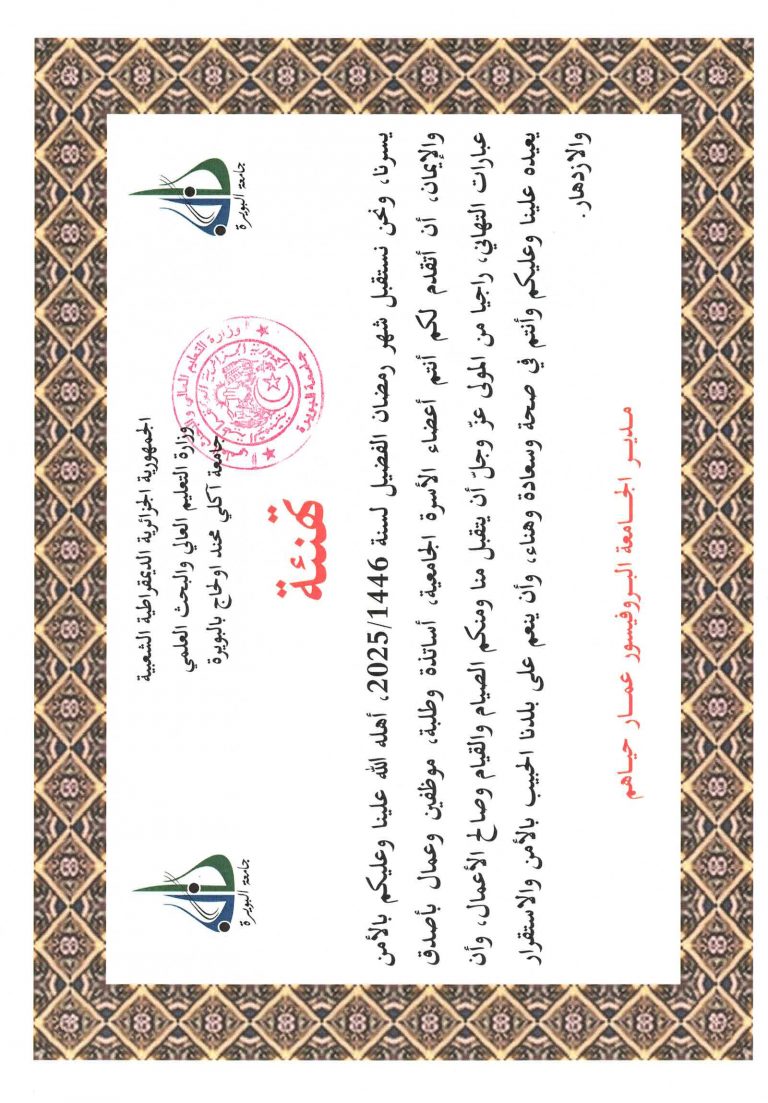 الجمهورية الجزائرية الديمقراطية الشعبية
وزارة التعليم العالي والبحث العلمي
جامعة آكلي محند اولحاج بالبويرة
جامعة البويرة
جامعة البويرة
تهنئة
يسرنا، ونحن نستقبل شهر رمضان الفضيل لسنة 2025/1446، أهله الله علينا وعليكم بالأمن
والإيمان، أن أتقدم لكم أنتم أعضاء الأسرة الجامعية، أساتذة وطلبة، موظفين وعمال بأصدق
عبارات التهاني، راجيا من المولى عزّ وجلّ أن يتقبل منا ومنكم الصيام والقيام وصالح الأعمال، وأن
يعيده علينا وعليكم وأنتم في صحة وسعادة وهناء، وأن ينعم على بلدنا الحبيب بالأمن والاستقرار
والازدهار.
مدير الجامعة البروفيسور عمار حياهم